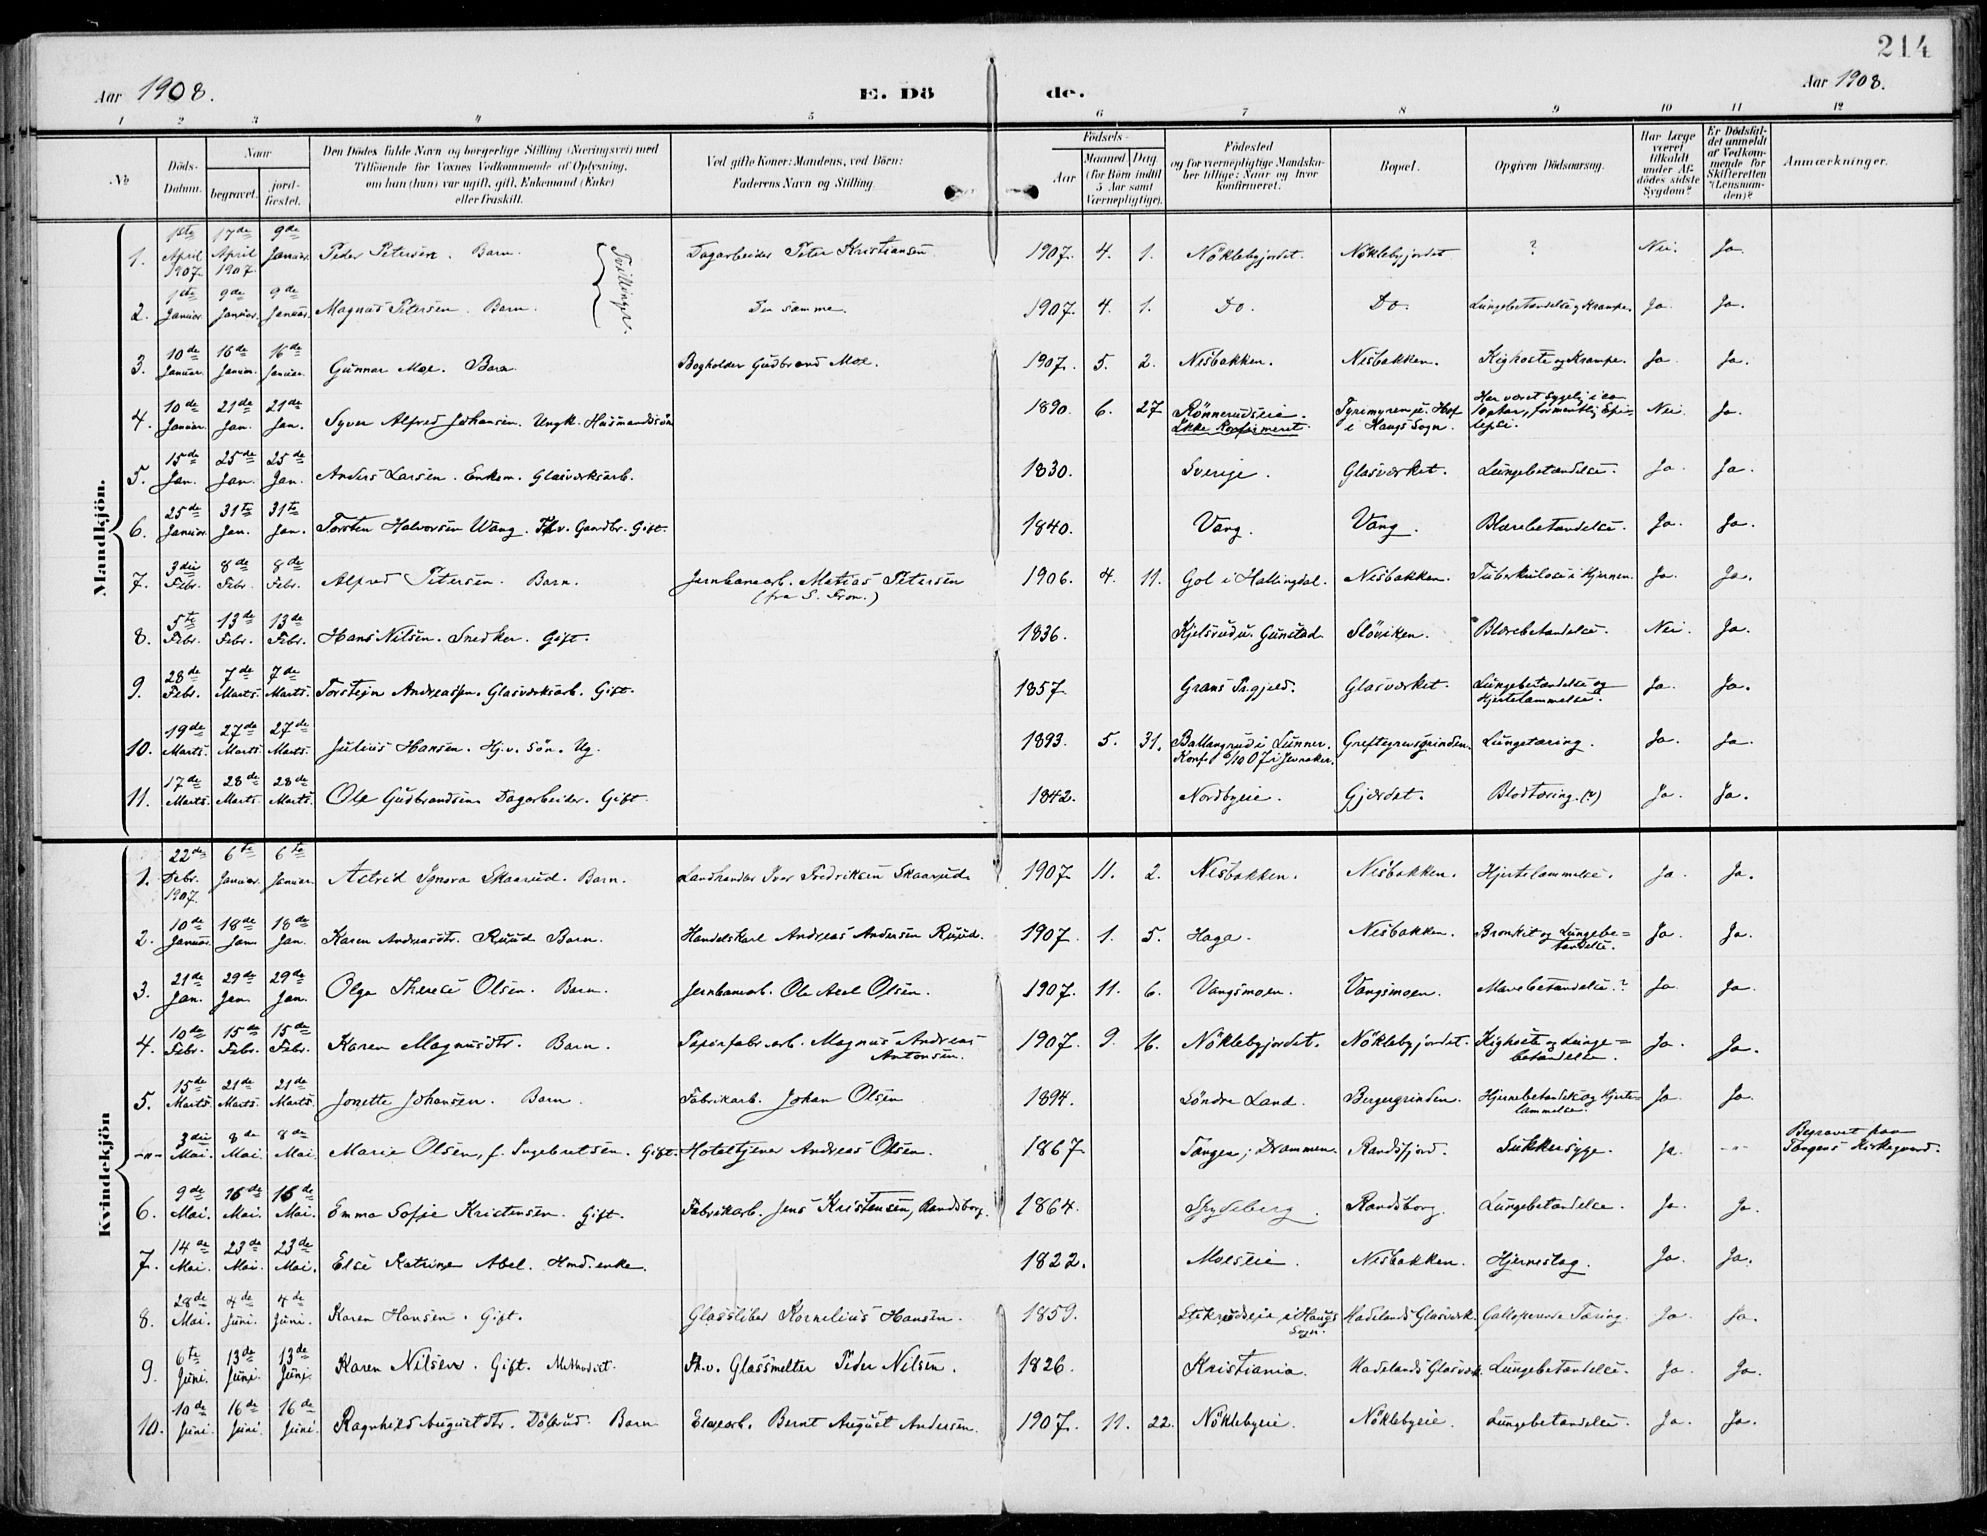 214
Aar 1908. E. Dö de. Aar 1908.
1 2 3 4 5 6 7 8 9 10 11 12
No
Döds-Datum.
Naar
begravet.
jord-fæstet.
Den Dödes fulde Navn og borgerlige Stilling (Næringsvei) med
Tilföiende for Voxnes Vedkommende af Oplysning,
om han (hun) var ugift, gift, Enkemand (Enke)
eller fraskilt.
Ved gifte Koner: Mandens, ved Börn:
Faderens Navn og Stilling.
Födsels-
Aar
Maaned Dag
(for Börn indtil
5 Aar samt
Værnepligtige).
Födested
og for værnepligtige Mandska-
ber tillige: Naar og hvor
konfirmeret.
Bopæl.
Opgiven Dödsaarsag.
Har Læge
været
tilkaldt
under Af-
dödes sidste
Sygdom?
Er Dödsfal-
det anmeldt
af Vedkom-
mende for
Skifteretten
(Lensman-
den)?
Anmærkninger.
Mandkjön.
1. 1ste April 1907. 17de April 1907 9de Januar. Peder Petersen. Barn. Tvillinger. Dagarbeider Peter Kristiansen 1907. 4. 1. Nöklebyjordet. Nöklebyjordet ? Nei. Ja.
2. 1ste Januar. 9de Januar. 9de Januar. Magnus Petersen. Barn. Den samme. 1907. 4. 1. Do. Do. Lungebetændelse og Krampe Ja. Ja.
3. 10de Januar. 16de Januar. 16de Januar. Gunnar Moe. Barn Bogholder Gudbrand Moe. 1907. 5. 2. Nesbakken. Nesbakken. Kighoste og Krampe. Ja. Ja.
4. 10de Januar. 21de Jan. 21de Jan. Syver Alfred Johansen. Ungk. Husmandssön 1890. 6. 27 Rönnerudseie. Ikke Konfirmeret. Tyrimyren u. Hof i Haugs Sogn. Har været sygelig i ca 10 Aar, formentlig Epilepsi. Nei. Ja.
5. 15de Jan. 25de Jan. 25de Jan. Anders Larsen. Enkem. Glasværksarb. 1830. Sverige. Glasværket. Lungebetændelse. Ja. Ja.
6. 25de Januar. 31te Jan. 31te Jan. Torsten Halvorsen Wang. Fhv. Gaardbr. Gift. 1840. Vang. Vang. Blærebetændelse. Ja. Ja.
7. 3die Febr. 8de Febr. 8de Febr. Alfred Petersen. Barn. Jernbanearb. Matias Petersen (fra S. Fron.) 1906. 4. 11. Gol i Hallingdal. Nesbakken. Tuberkulose i Hjernen. Ja. Ja.
8. 5te Febr. 13de Febr. 13de Febr. Hans Nilsen. Snedker. Gift. 1836. Kjelsrud u. Gunstad. Slöviken. Blærebetændelse. Nei. Ja.
9. 28de Febr. 7de Marts. 7de Marts. Torstejn Andreassen. Glasværksarb. Gift. 1857. Grans Prgjeld. Glasværket. Lungebetændelse og Hjertelammelse. Ja. Ja.
10. 19de Marts. 27de Marts. 27de Marts. Julius Hansen. Hj.v. Sön. Ug. 1893. 5. 31. Ballangrud i Lunner. Konf. 6/10 07 i Jevnaker. Greftegrevsgrinden. Lungetæring. Ja. Ja.
11. 17de Marts. 28de Marts. 28de Marts. Ole Gudbrandsen Dagarbeider. Gift. 1842. Nordbyeie. Gjærdet. Blodtæring. (?) Ja. Ja.
Kvindekjön
1. 22de Debr. 1907. 6te Januar. 6te Januar. Astrid Ignora Skaarud. Barn. Landhandler Iver Fredriksen Skaarud. 1907 11. 2. Nesbakken. Nesbakken. Hjertelammelse. Ja. Ja.
2. 10de Januar. 18de Jan. 18de Jan. Karen Andreasdtr. Ruud Barn. Handelskarl Andreas Andersen Ruud. 1907. 1. 5. Haga. Nesbakken. Bronkit og Lungebetændelse. Ja. Ja.
3. 21de Jan. 29de Jan. 29de Jan. Olga Therese Olsen. Barn. Jernbanearb. Ole Axel Olsen. 1907. 11. 6. Vangsmoen. Vangsmoen. Mavebetændelse.? Ja. Ja.
4. 10de Febr. 15de Febr. 15de Febr. Karen Magnusdtr. Barn. Papirfabr.arb. Magnus Andreas Antonsen. 1907. 9. 16. Nöklebyjordet. Nöklebyjordet. Kighoste og Lungebetændelse. Ja. Ja.
5. 15de Marts. 21de Marts. 21de Marts. Jonette Johansen. Barn. Fabrikarb. Johan Olsen 1894. Söndre Land. Bergergrinden. Hjernebetændelse og Hjertelammelse. Ja. Ja.
-"- 3die Mai. 8de Mai. 8de Mai Marie Olsen, f. Ingebretsen. Gift. Hoteltjener Andreas Olsen. 1867. Tangen i Drammen. Randsfjord. Sukkersyge. Ja. -- Begravet paa Tangens Kirkegaard.
6. 9de Mai. 16de Mai. 16de Mai. Emma Sofie Kristensen. Gift. Fabrikarb. Jens Kristensen, Randsborg. 1864. Spydeberg. Randsborg. Lungebetændelse. Ja. Ja.
7. 14de Mai. 23de Mai. 23de Mai. Else Katrine Abel. Hmd.enke. 1822. Moeseie. Nesbakken. Hjerneslag. Ja. Ja.
8. 28de Mai. 4de Juni. 4de Juni. Karen Hansen. Gift. Glassliber Kornelius Hansen. 1859. i Haugs Sogn. Hadelands Glasværk. Galloperende Tæring. Ja. Ja.
9. 6te Juni. 13de Juni. 13de Juni. Karen Nilsen. Gift. Methodist. Fh.v. Glassmelter Peder Nilsen. 1826. Kristiania. Hadelands Glasværk. Lungebetændelse. Ja. Ja.
10. 10de Juni. 16de Juni. 16de Juni. Ragnhild Augustdtr. Dölrud. Barn Elvearb. Bernt August Andersen. 1907. 11. 22. Nöklebyeie. Nöklebyeie. Lungebetændelse. Ja. Ja.